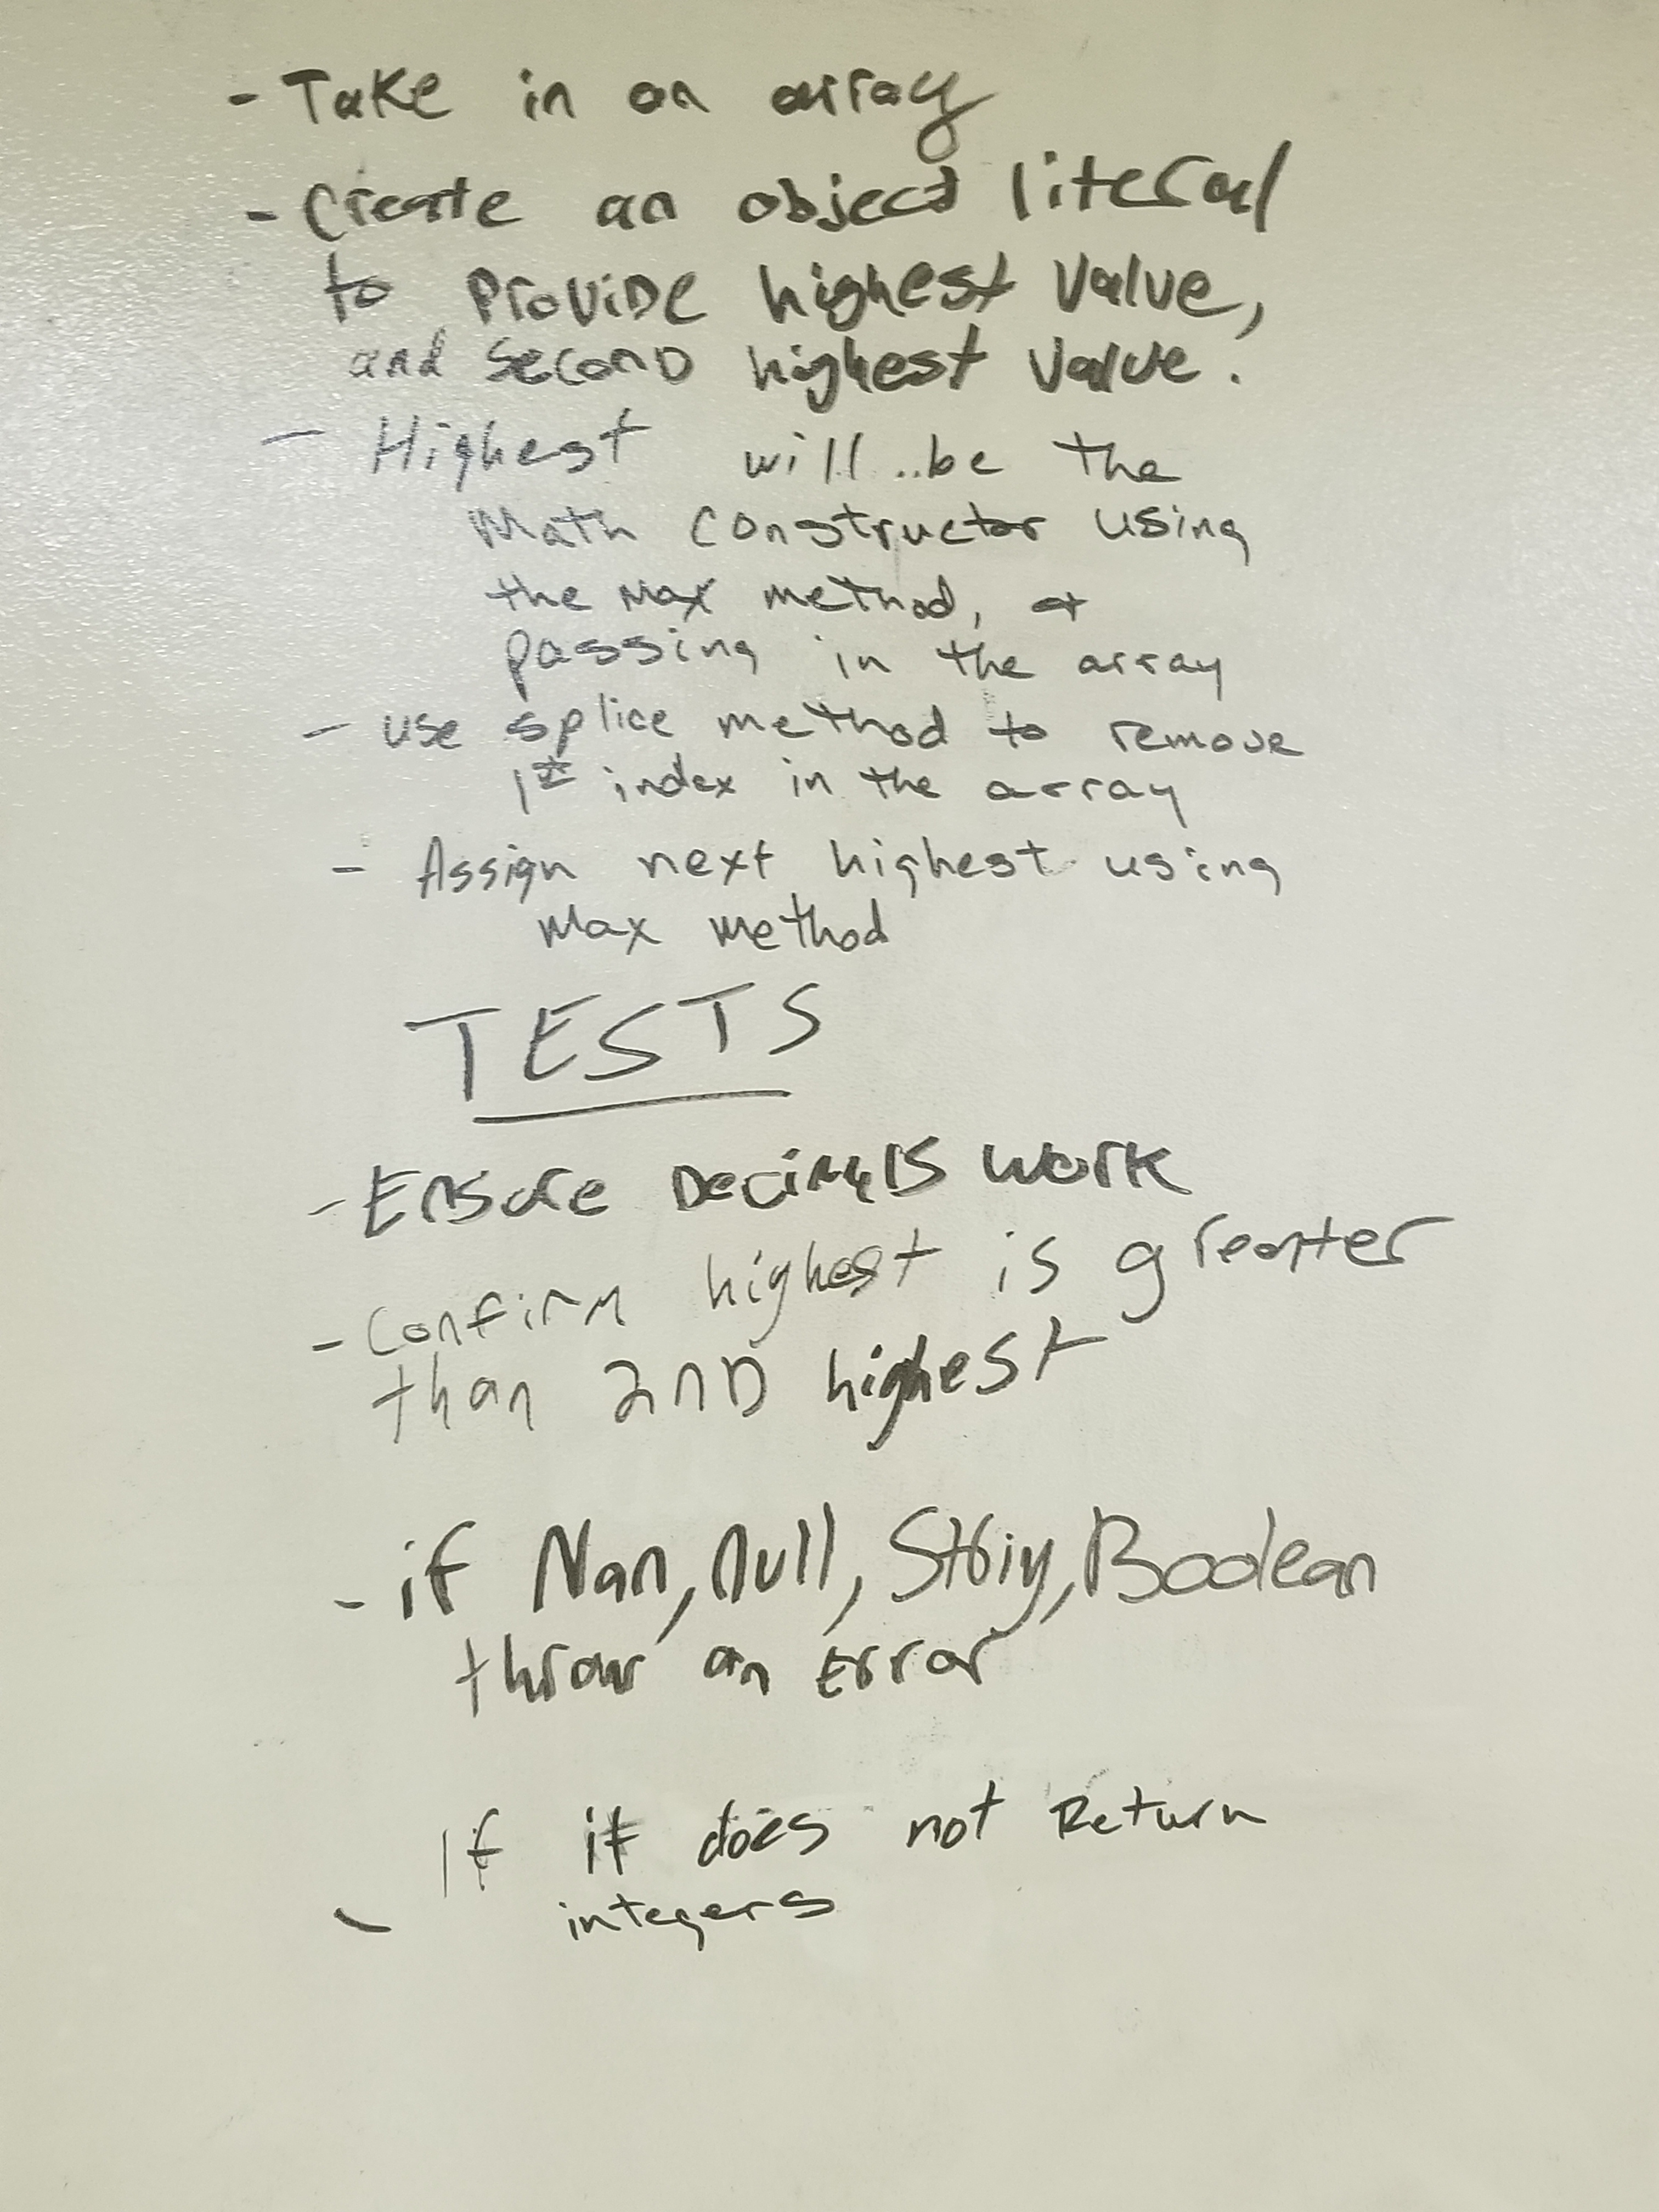 - Take in an array
- Create an object literal
to Provide highest Value,
and Second highest Value.
- Highest will be the
Math constructor using
the Max method, &
passing in the array
- use splice method to remove
1st index in the array
- Assign next highest using
Max method
TESTS
- Ensure Decimals work
- Confirm highest is greater
than 2nd highest
- if Nan, null, String, Boolean
throw an Error
If it does not Return
- integers